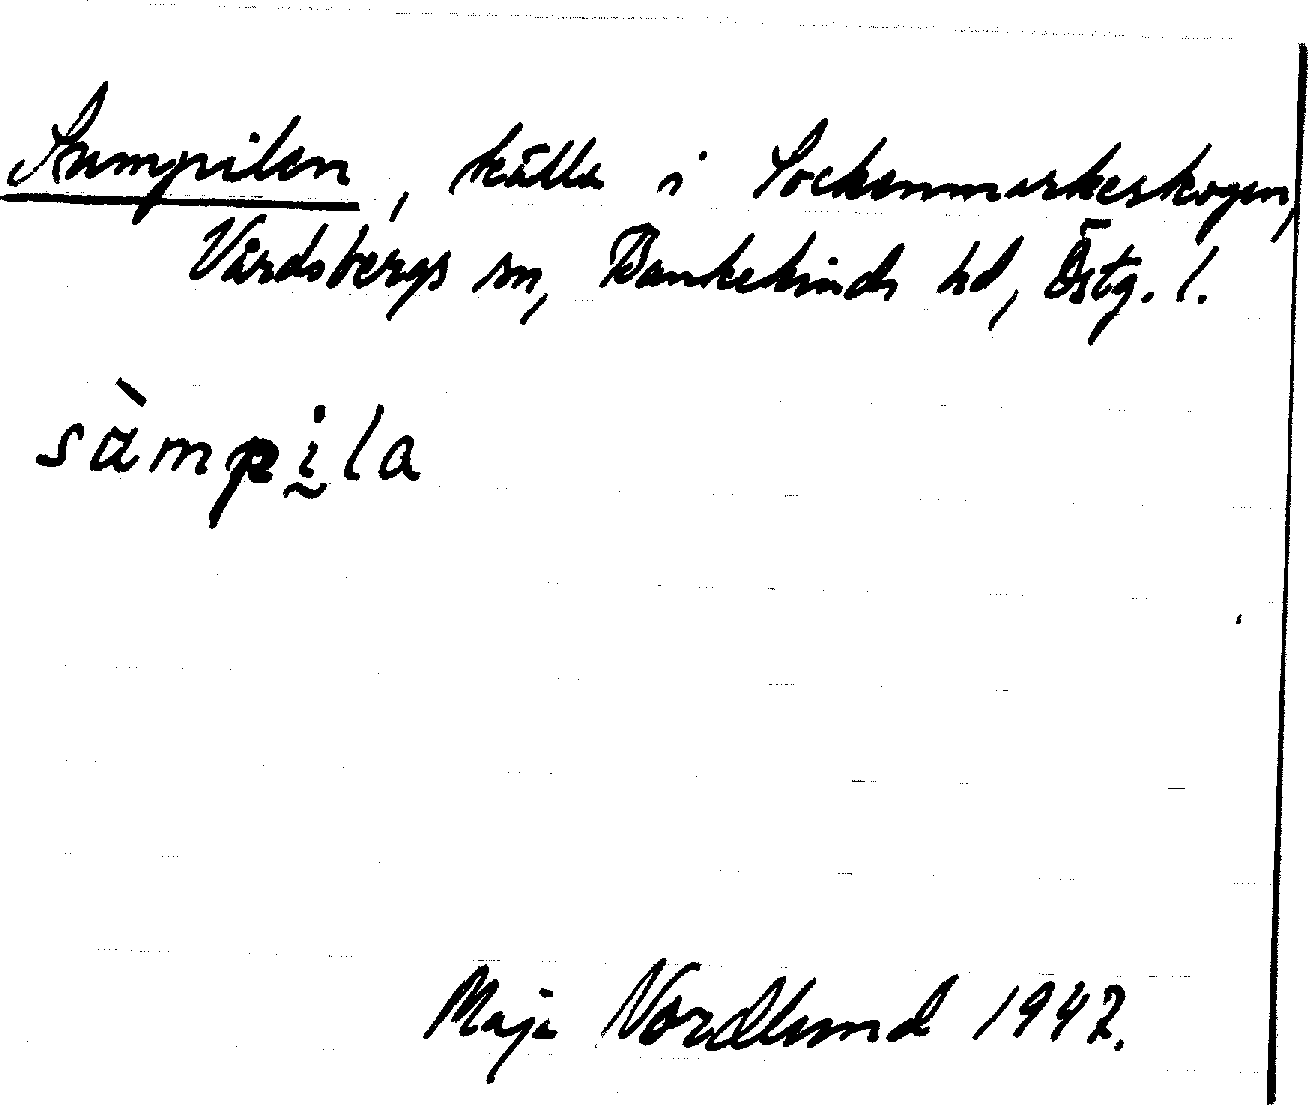 Sumpilen, källa i Sockenmarkeskogen,
Vårdsbergs sn, Bankekinds hd, Östg. l.
sàmpila
Maja Nordlund 1947.